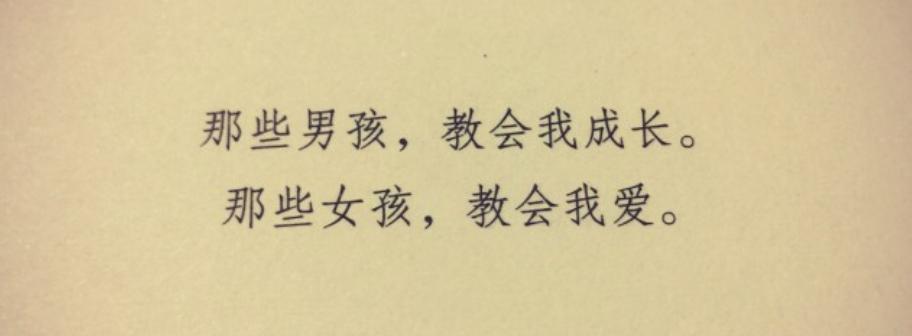 那些男孩，教会我成长。
那些女孩，教会我爱。